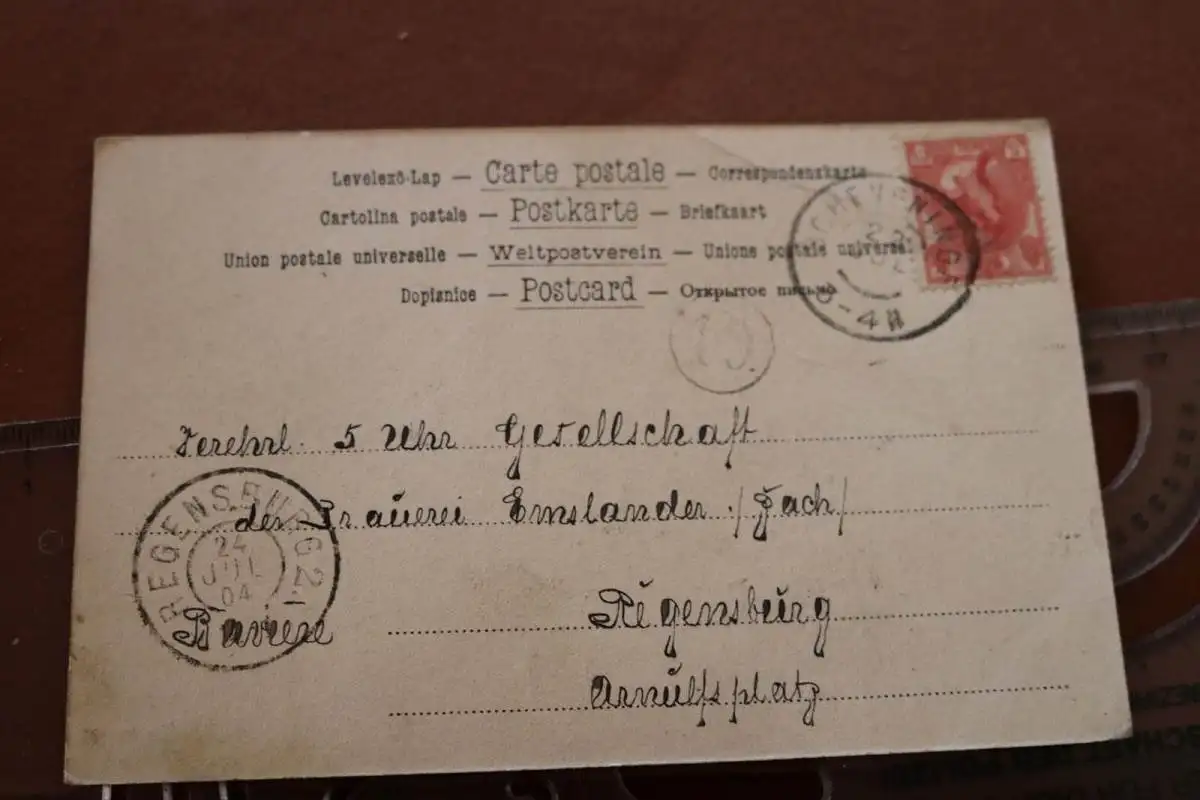 Levelezõ-Lap — Carte postale — Correspondenzkarte
Cartolina postale — Postkarte — Briefkaart
Union postale universelle — Weltpostverein — Unione postale universale
Dopisnice — Postcard — Открытое письмо
SCHEVENINGEN
3-4N
Verehrl. 5 Uhr Gesellschaft
der Brauerei Emslander /Fach/
REGENSBURG 2
24
JUL
04
Baviere
Regensburg
Arnulfsplatz